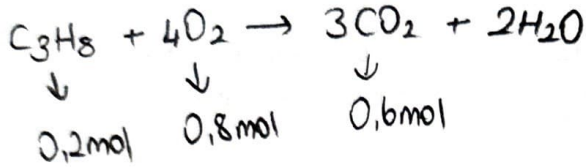 C₃H₈ + 4O₂ → 3CO₂ + 2H₂O
↓ ↓ ↓
0,2mol 0,8mol 0,6mol